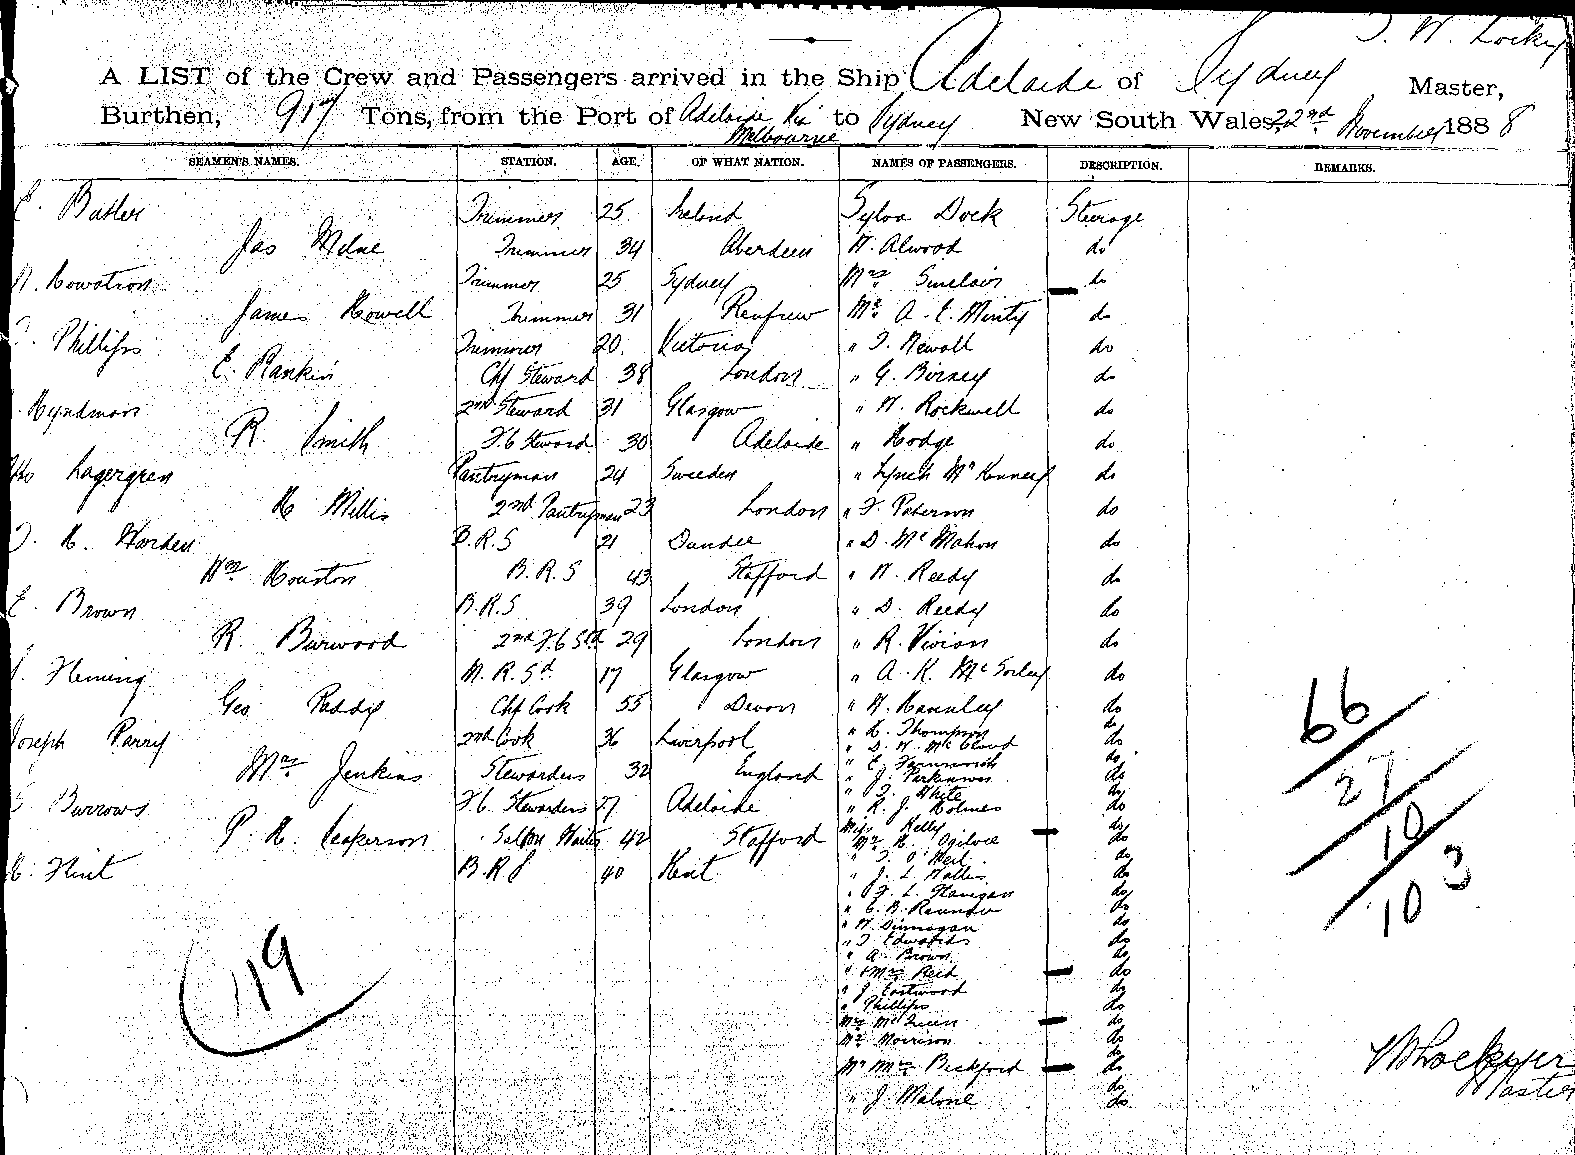 T. W. Lockyer
A LIST of the Crew and Passengers arrived in the Ship Adelaide of Sydney Master,
Burthen, 917 Tons, from the Port of Adelaide Via Melbourne to Sydney New South Wales 22nd November 1888
SEAMEN'S NAMES. STATION. AGE. OF WHAT NATION. NAMES OF PASSENGERS. DESCRIPTION. REMARKS.
E. Butler Trimmer 25 Ireland Sylva Dock Steerage
Jas Milne Trimmer 34 Aberdeen W. Alwood do
Trimmer 25 Sydney Mrs Sinclair do
James Howell Trimmer 31 Renfrew Mr A. E. Minty do
Phillips Trimmer 20 Victoria " T. Newall do
E. Rankin Chf Steward 38 London " G. Birney do
Hyndman 2nd Steward 31 Glasgow " W. Rockwell do
R Smith F.C Steward 30 Adelaide " Hodge do
Lagergren Pantryman 24 Sweden " Lynch do
H Millis 2nd Pantryman 23 London " F. Paterson do
J. H. Warden B.R.S 21 Dundee " D. McMahon do
Wm Houston B.R.S 43 Stafford " W. Reedy do
E. Brown B.R.S 39 London " D. Reedy do
R. Burwood 2nd F.C Std 29 London " R. Vivian do
Fleming M.R.Sd 17 Glasgow " A. K. McSorley do
Geo Paddy Chf Cook 55 Devon " do
Joseph Parry 2nd Cook 36 Liverpool " H. Thompson do
" D. W. McCloud do
Mrs Jenkins Stewardess 32 England " E. Farnsworth do
" J. Parkinson do
Burrows F.C. Stewardess 27 Adelaide " T. White do
" R. J. Holmes do
P. H. Saloon Waiter 42 Stafford Miss Kelly do
Mr H. Ogilvie do
" T. O'Neil do
Flint B.R.S 40 Kent " J. L. Wallis do
" F. L. Flanigan do
" C. B. do
" W. Dinnagan do
" T. Edwards do
" A. Brown do
" Mrs Reid do
" J. Eastwood do
" Phillips do
Mrs McQueen do
Mr Morrison do
Mr Mrs Beckford do
" J. Malone do
66
27
10
103
119
Lockyer
Master